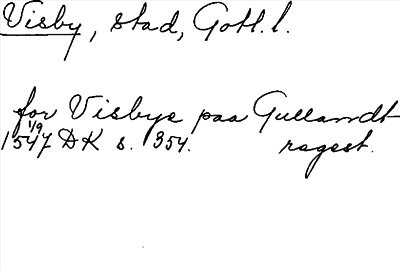 Visby, stad, Gotl. l.
for Visbye paa Gullandt
1/9
1547 DK s. 354. ragest.